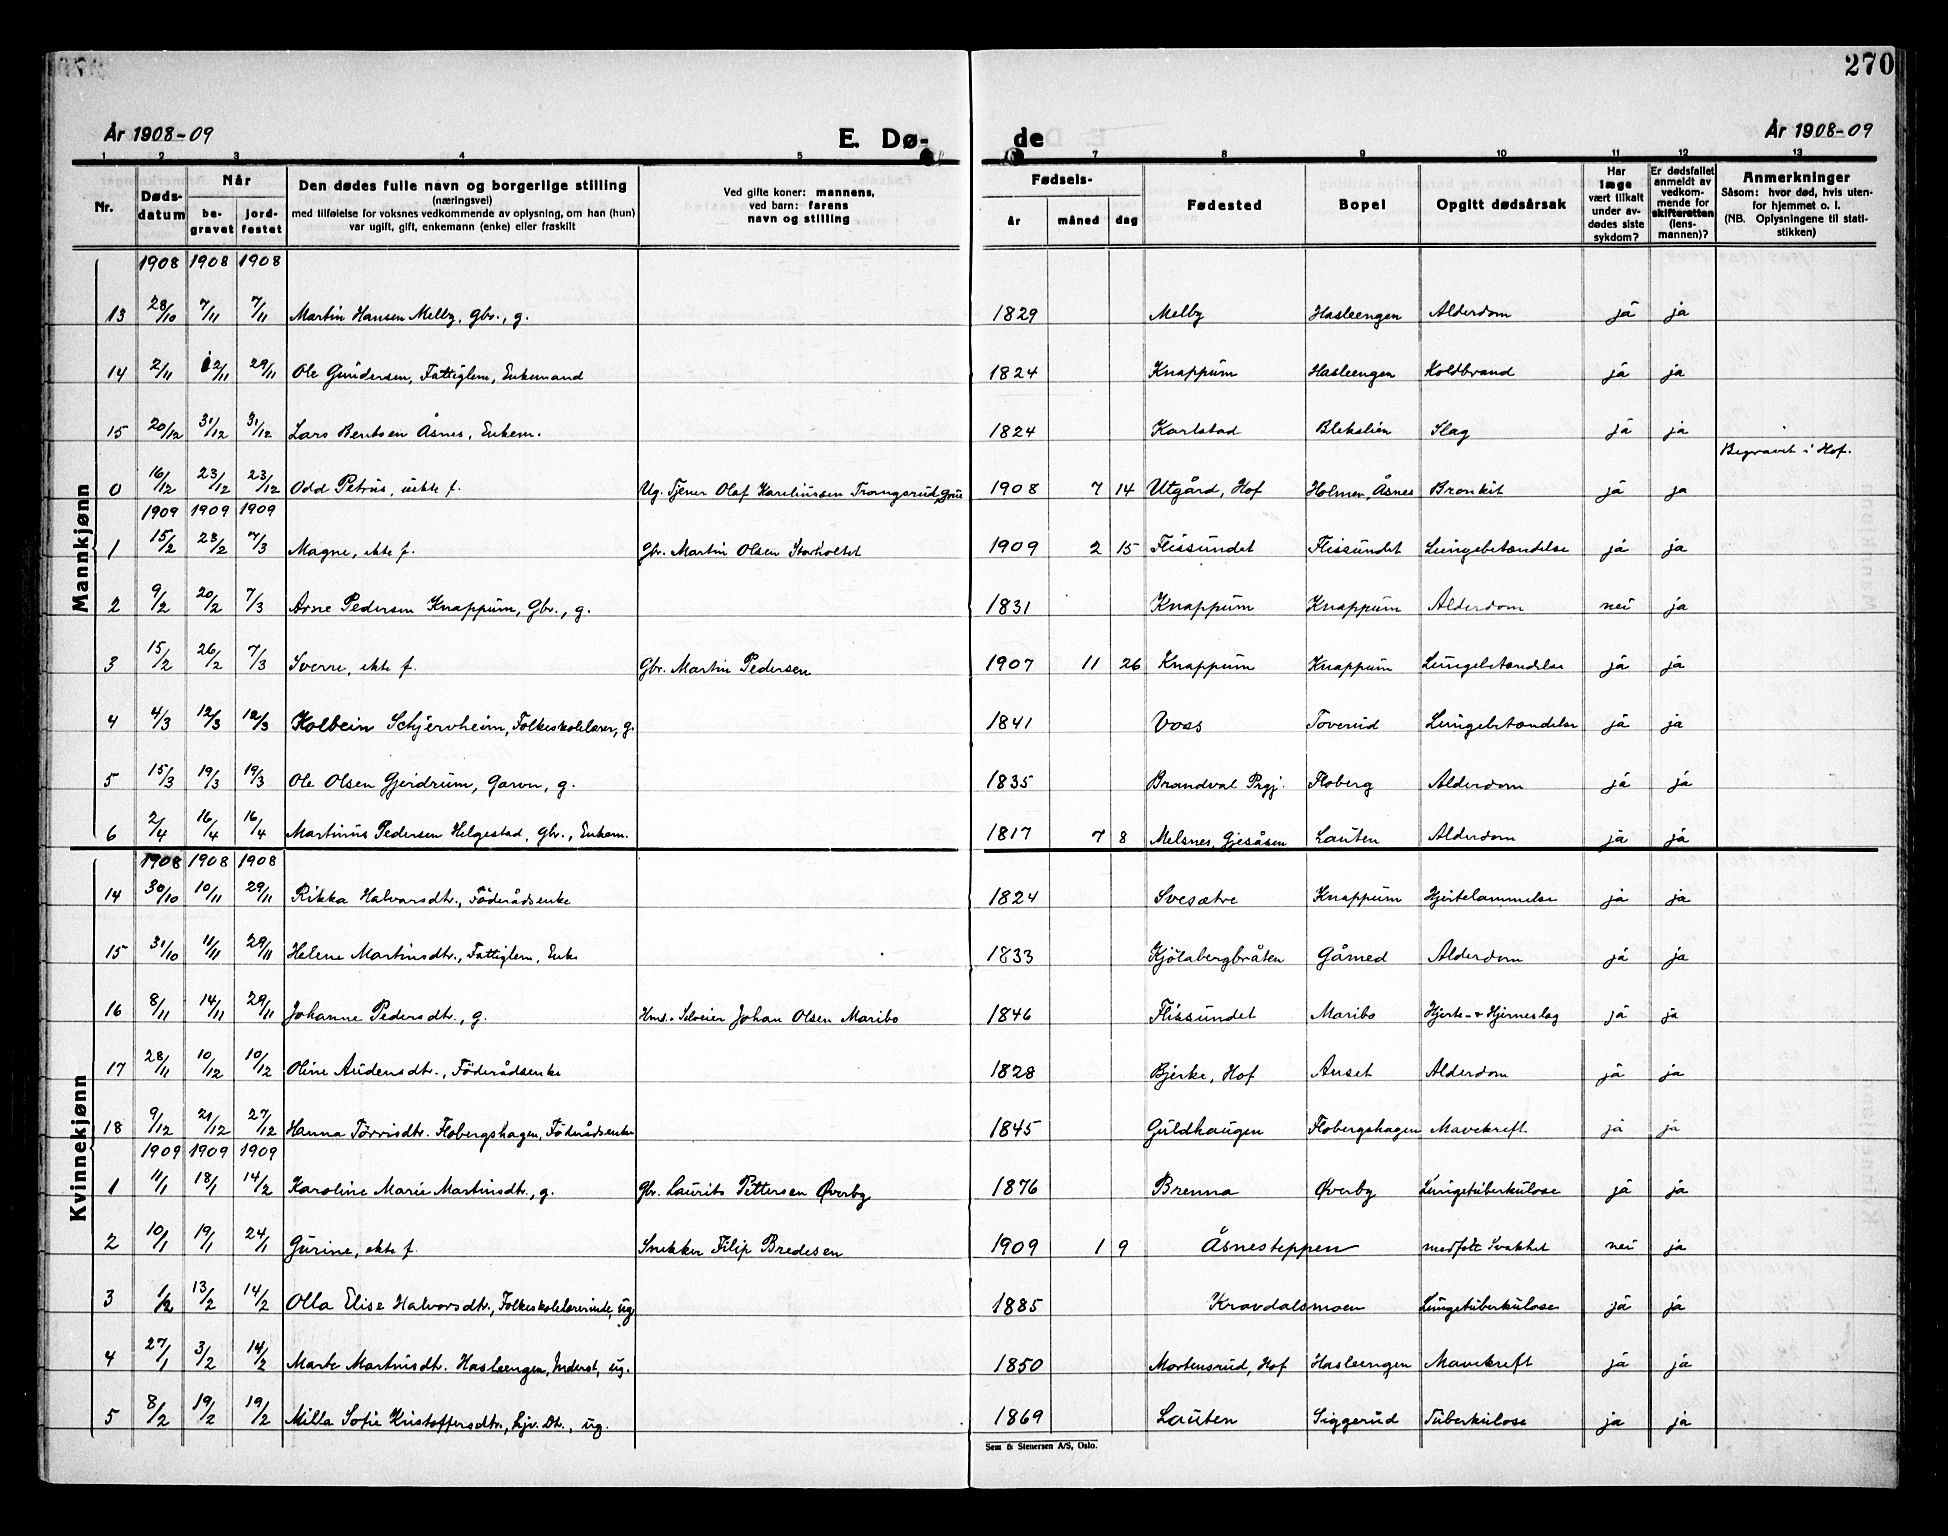 270
År 1908-09 E. Dø- de År 1908-09
1 2 3 4 5 7 8 9 10 11 12 13
Nr. Døds-datum Når be-gravet jord-festet Den dødes fulle navn og borgerlige stilling (næringsvei) med tilføielse for voksnes vedkommende av oplysning, om han (hun) var ugift, gift, enkemann (enke) eller fraskilt Ved gifte koner: mannens, ved barn: farens navn og stilling Fødsels- år måned dag Fødested Bopel Opgitt dødsårsak Har læge vært tilkalt under av-dødes siste sykdom? Er dødsfallet anmeldt av vedkom-mende for skifteretten (lens-mannen)? Anmerkninger Såsom: hvor død, hvis uten-for hjemmet o. l. (NB. Oplysningene til stati-stikken)
Mannkjønn
1908 1908 1908
13 28/10 7/11 7/11 Martin Hansen Melby, Gbr., g. 1829 Melby Hasleengen Alderdom ja ja
14 2/11 12/11 29/11 Ole Gundersen, Fattiglem, Enkemand 1824 Knappum Hasleengen Koldbrand ja ja
15 20/12 31/12 31/12 Lars Bentsen Åsnes, Enkem. 1824 Karlstad Blekslien Slag ja ja
0 16/12 23/12 23/12 Odd Petrus, uekte f. Ug. Tjener Olaf Kareliussen Trangsrud, Grue 1908 7 14 Utgård, Hof Holmen, Åsnes Bronkit ja ja Begravet i Hof.
1909 1909 1909
1 15/2 23/2 7/3 Magne, ekte f. Gbr. Martin Olsen Storholtet 1909 2 15 Flissundet Flissundet Lungebetændelse ja ja
2 9/2 20/2 7/3 Arne Pedersen Knappum, Gbr., g. 1831 Knappum Knappum Alderdom nei ja
3 15/2 26/2 7/3 Sverre, ekte f. Gbr. Martin Pedersen 1907 11 26 Knappum Knappum Lungebetændelse ja ja
4 4/3 12/3 12/3 Kolbein Schjervheim, Folkeskolelærer, g. 1841 Voss Toverud Lungebetændelse ja ja
5 15/3 19/3 19/3 Ole Olsen Gjerdrum, Garver, g. 1835 Brandval Prgj. Floberg Alderdom ja ja
6 2/4 16/4 16/4 Martinus Pedersen Helgestad, Gbr., Enkem. 1817 7 8 Melsnes, Gjesåsen Lauten Alderdom ja ja
Kvinnekjønn
1908 1908 1908
14 30/10 10/11 29/11 Rikka Halvorsdtr., Föderådsenke 1824 Svesætre Knappum Hjertelammelse ja ja
15 31/10 11/11 29/11 Helene Martinsdtr., Fattiglem, Enke 1833 Kjölabergbråten Gårned Alderdom ja ja
16 8/11 14/11 29/11 Johanne Pedersdtr., g. Hmd. Selveier Johan Olsen Maribo 1846 Flissundet Maribo Hjerte- & Hjerneslag ja ja
17 28/11 10/12 10/12 Oline Audensdtr., Föderådsenke 1828 Bjerke, Hof Anset Alderdom ja ja
18 9/12 21/12 27/12 Hanna Törrisdtr. Flobergshagen, Föderådsenke 1845 Guldhaugen Flobergshagen Mavekreft ja ja
1909 1909 1909
1 11/1 18/1 14/2 Karoline Marie Martinsdtr., g. Gbr. Laurits Pettersen Øverby 1876 Brenna Øverby Lungetuberkulose ja ja
2 10/1 19/1 24/1 Gurine, ekte f. Snekker Filip Bredesen 1909 1 9 Åsnesteppen medfött Svakhet nei ja
3 1/2 13/2 14/2 Olla Elise Halvorsdtr., Folkeskolelærerinde, ug. 1885 Kravdalsmoen Lungetuberkulose ja ja
4 27/1 3/2 14/2 Marte Martinsdtr. Hasleengen, Inderst, ug. 1850 Mortensrud, Hof Hasleengen Mavekreft ja ja
5 8/2 19/2 19/2 Milla Sofie Kristoffersdtr., hjv. Dtr., ug. 1869 Lauten Siggerud Tuberkulose ja ja
Sem & Stenersen A/S, Oslo.